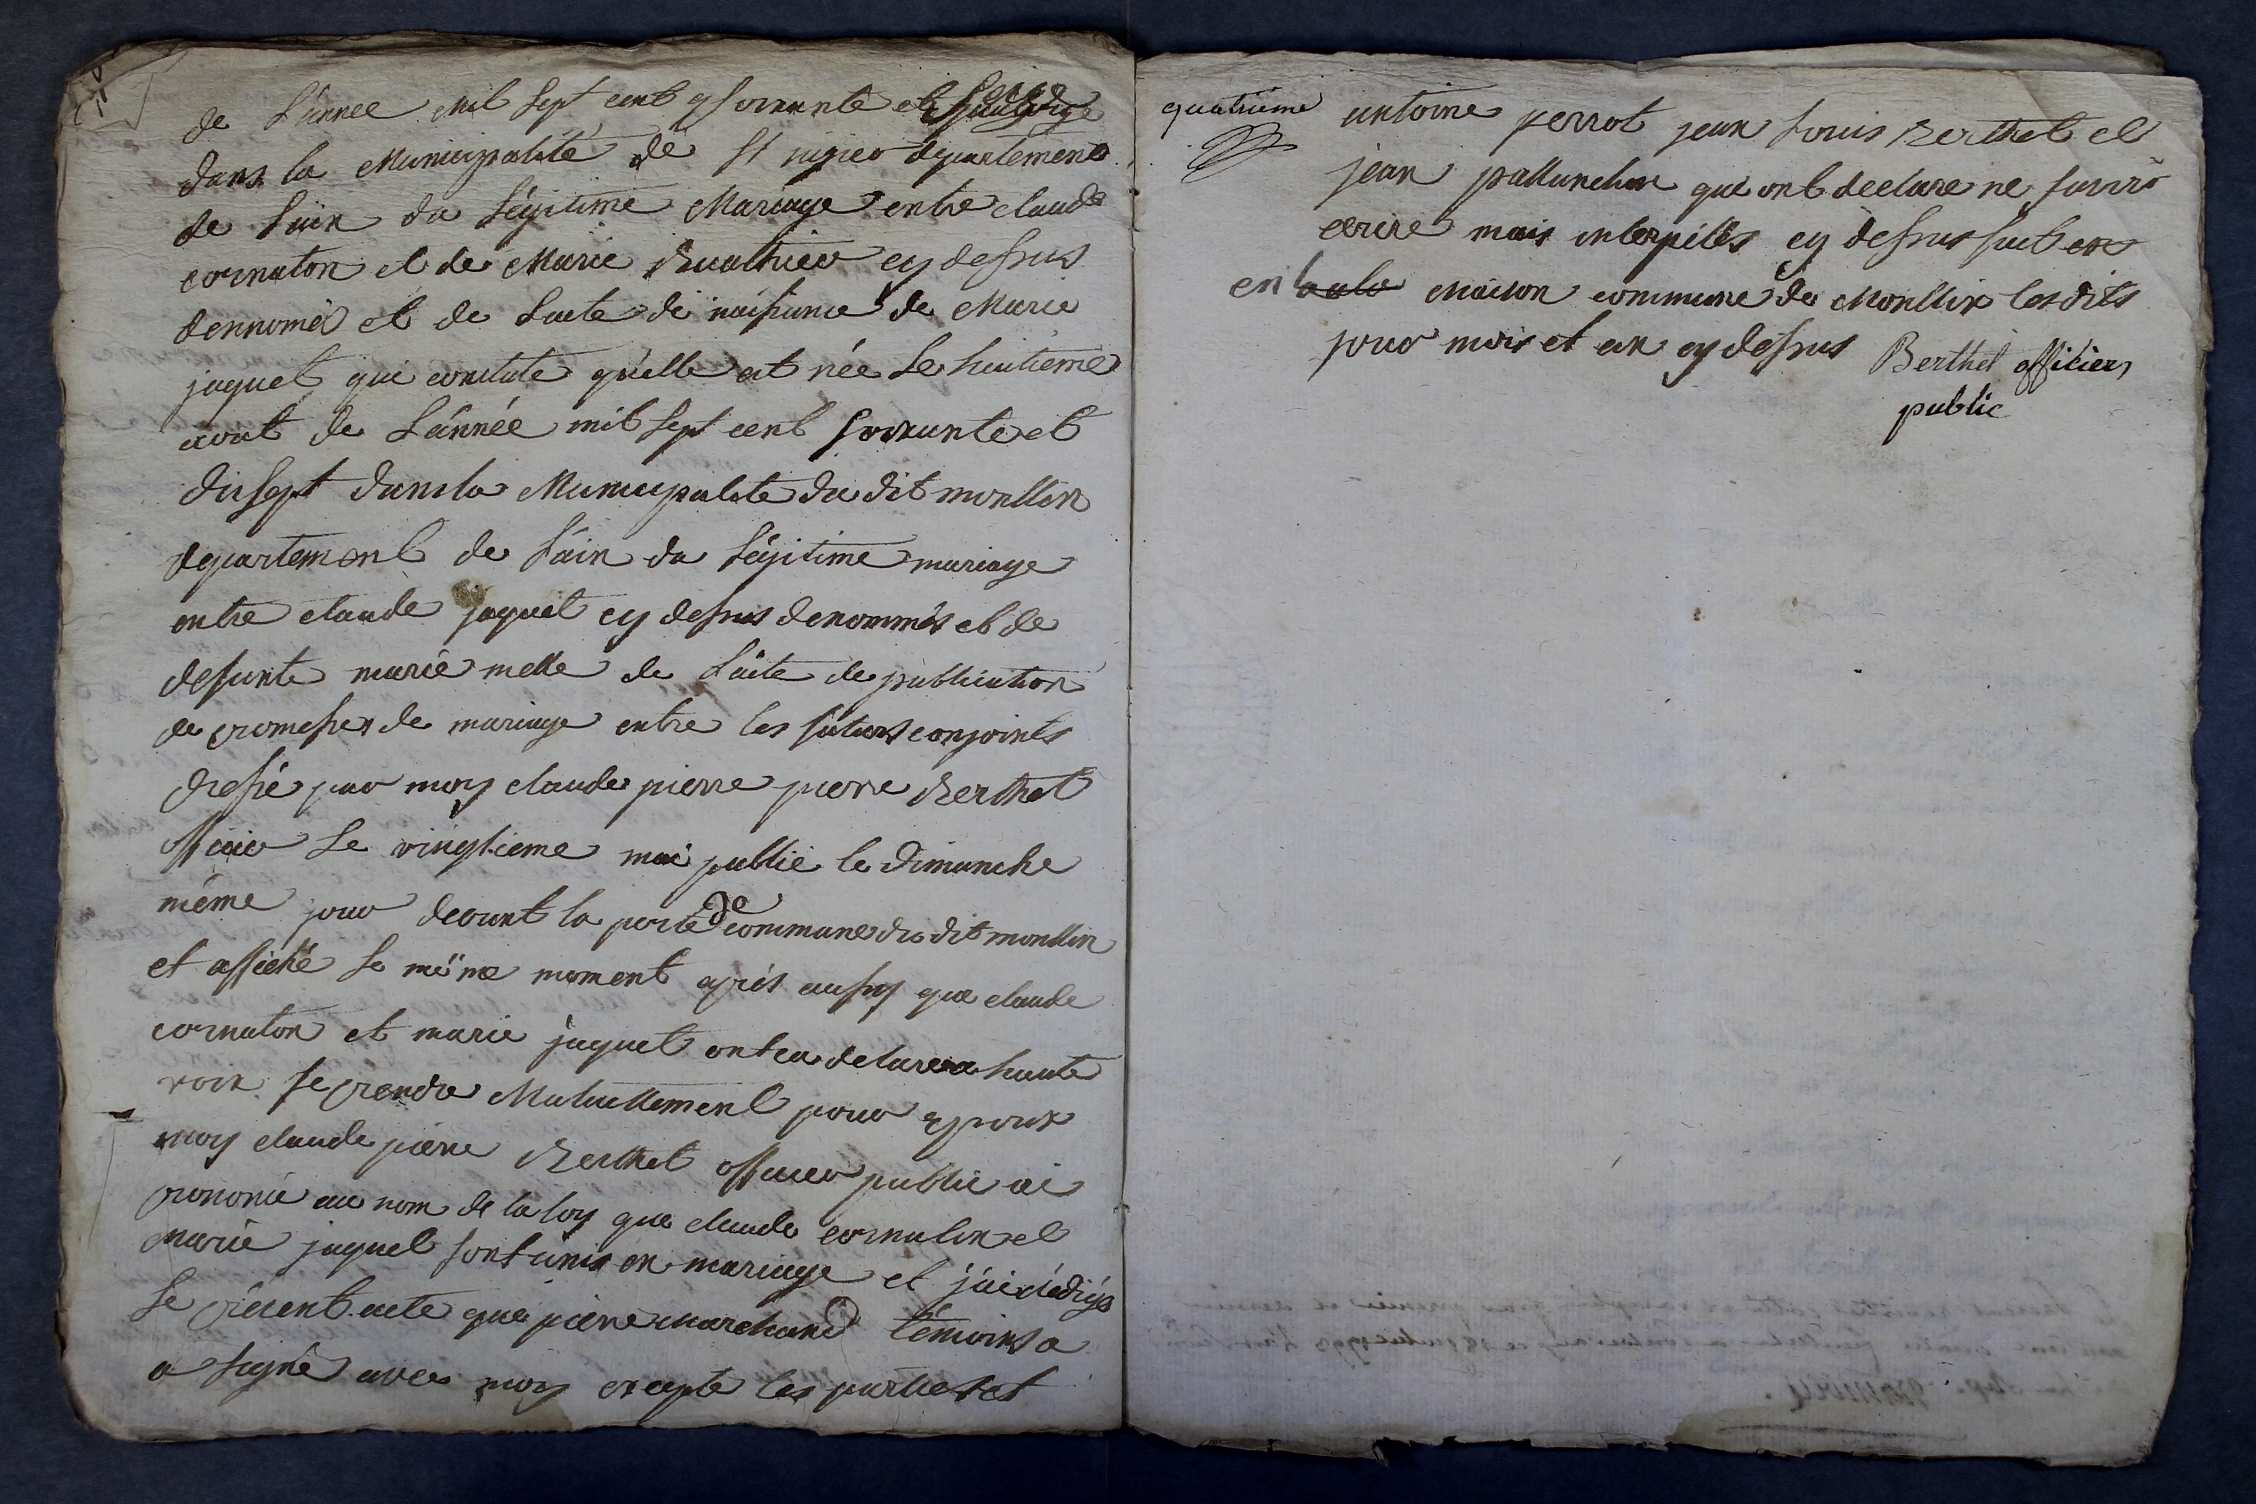 de L'annee mil sept cent soixante et seize
dans la Municipalité de St sigier departement
de Lain du Légitime Mariage entre claude
cornaton et de Marie Guathier cy dessus
dennomé et de Lacte de naissance de Marie
jaquet qui constate qu'elle est née Le huitieme
aout de L'année mil sept cent soixante et
disept dans la Municipalite du dit montlin
departement de Lain du Légitime mariage
entre claude jaquet cy dessus denommés et de
defunte marie melle de Lacte de publication
de promesses de mariage entre les futurs conjoints
dressé par moy claude pierre pierre Berthet
officier Le vingtieme mai publié le dimanche
même jour devant la porte de commune du dit montlin
et affiché Le même moment après aussy que claude
cornaton et marie jaquet ont eu declaré a haute
voix se prendre Mutuellement pour epoux
moy claude pierre Berthet officier public ai
prononcé au nom de la loy que claude cornaton et
marie jaquet sont unis en mariage et j'ai rédigé
Le présent acte que pierre marchand témoins a
a signé avec moy excepté les parties et
quatrième
antoine perrot jean Louis Berthet et
jean pallanchon qui ont declare ne savoir
ecrire mais interpellés cy dessus fait en
en la maison commune de Montlin les dits
jour mois et an cy dessus
Berthet officier
public